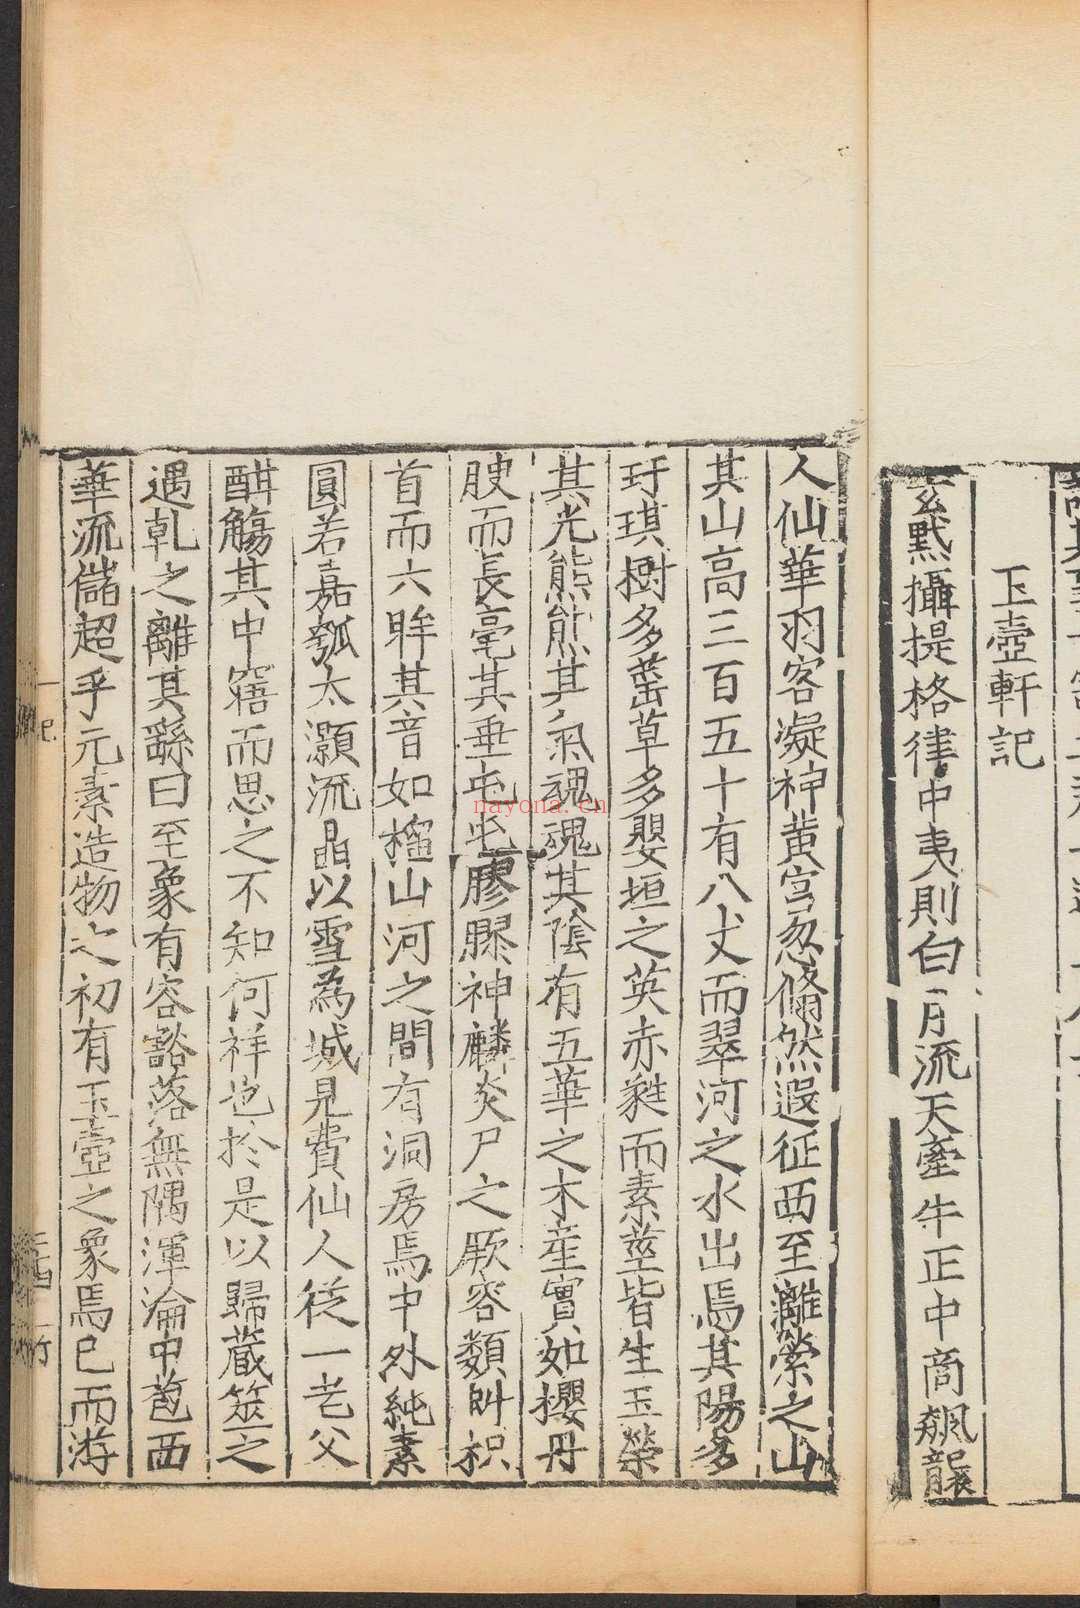 玉壺軒記
玄黙攝提格律中夷則白月流天牽牛正中商飆襲
人仙華羽客凝神黄宫忽翛然遐征西至離縈之山
其山高三百五十有八丈而翠河之水出焉其陽多
玗琪樹多蓍草多嬰垣之英赤蕤而素莖皆生玉榮
其光熊熊其氣魂魂其陰有五華之木産實如櫻丹
腴而長毫其垂屯屯膠膠神麟炎尸之厥容類
首而六眸其音如榴山河之間有洞房焉中外純素
圓若嘉瓠太灝流晶以雪為城見費仙人從一老父
酣觴其中寤而思之不知何祥也於是以歸蔵筮之
遇乹之離其繇曰至象有容豁落無隅渾淪中苞西
華流儲超乎元素造物之初有玉壺之象焉已而游
nayona.cn